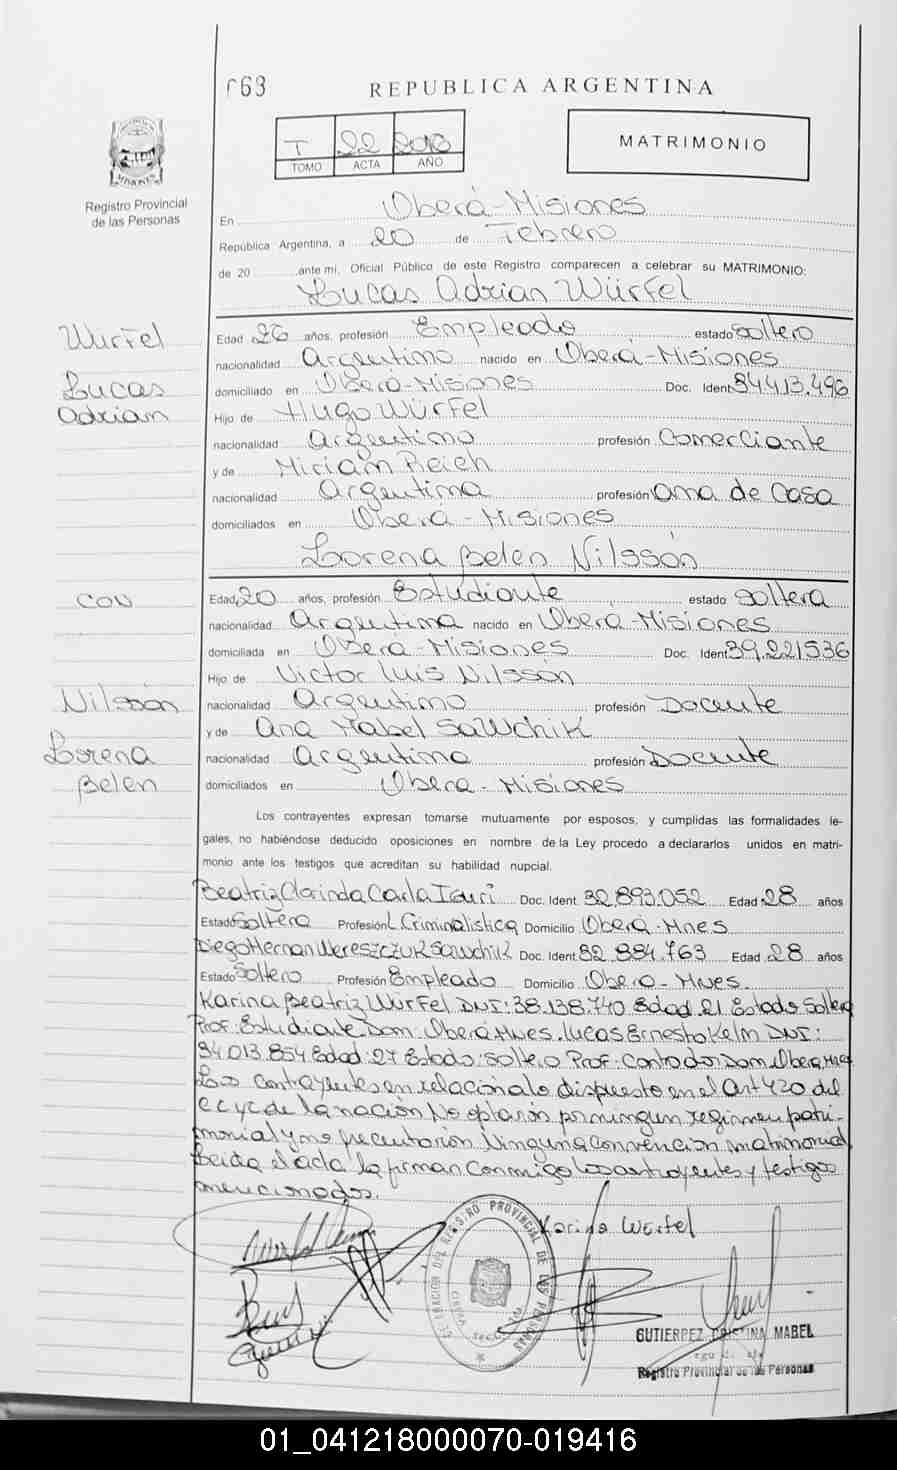 63
REPUBLICA ARGENTINA
T 22
TOMO ACTA AÑO
MATRIMONIO
MISIONES
Registro Provincial
de las Personas
En Oberá-Misiones
República Argentina, a 20 de Febrero
de 20 ante mi, Oficial Público de este Registro comparecen a celebrar su MATRIMONIO:
Lucas Adrian Würfel
Würfel
Lucas
Adrian
Edad 26 años, profesión Empleado estado soltero
nacionalidad Argentino nacido en Oberá-Misiones
domiciliado en Oberá-Misiones Doc. Ident 34.413.496
Hijo de Hugo Würfel
nacionalidad Argentino profesión Comerciante
y de Miriam Reich
nacionalidad Argentina profesión ama de casa
domiciliados en Oberá-Misiones
Lorena Belen Nilsson
con
Edad 20 años, profesión Estudiante estado soltera
nacionalidad Argentina nacido en Oberá-Misiones
domiciliada en Oberá-Misiones Doc. Ident 39.221536
Hijo de Victor Luis Nilsson
Nilsson
Lorena
Belen
nacionalidad Argentino profesión Docente
y de Ana Mabel Sawchik
nacionalidad Argentina profesión Docente
domiciliados en Oberá-Misiones
Los contrayentes expresan tomarse mutuamente por esposos, y cumplidas las formalidades le-
gales, no habiéndose deducido oposiciones en nombre de la Ley procedo a declararlos unidos en matri-
monio ante los testigos que acreditan su habilidad nupcial.
Beatriz Clorinda Carla Doc. Ident 32.893.052 Edad 28 años
Estado Soltera Profesión L Criminalistica Domicilio Oberá-Mnes
Diego Hernan Wereszczuk Sawchik Doc. Ident 32.884.763 Edad 28 años
Estado Soltero Profesión Empleado Domicilio Oberá-Mnes.
Karina Beatriz Würfel DNI: 38.138.740 Edad 21 Estado Soltera
Prof: Estudiante Dom: Oberá Mnes. Lucas Ernesto Kelm DNI:
34.013.854 Edad: 27 Estado: soltero Prof: Contador Dom Oberá Mnes
Los contrayentes en relacion a lo dispuesto en el art 420 del
c c y c de la nación No optaron por ningun regimen patri-
monial y no presentaron Ninguna convencion matrimonial
Leida el acta la firman conmigo los contrayentes y testigos
mencionados.
Karina Würfel
GUTIERREZ CRISTINA MABEL
Registro Provincial de las Personas
01_041218000070-019416